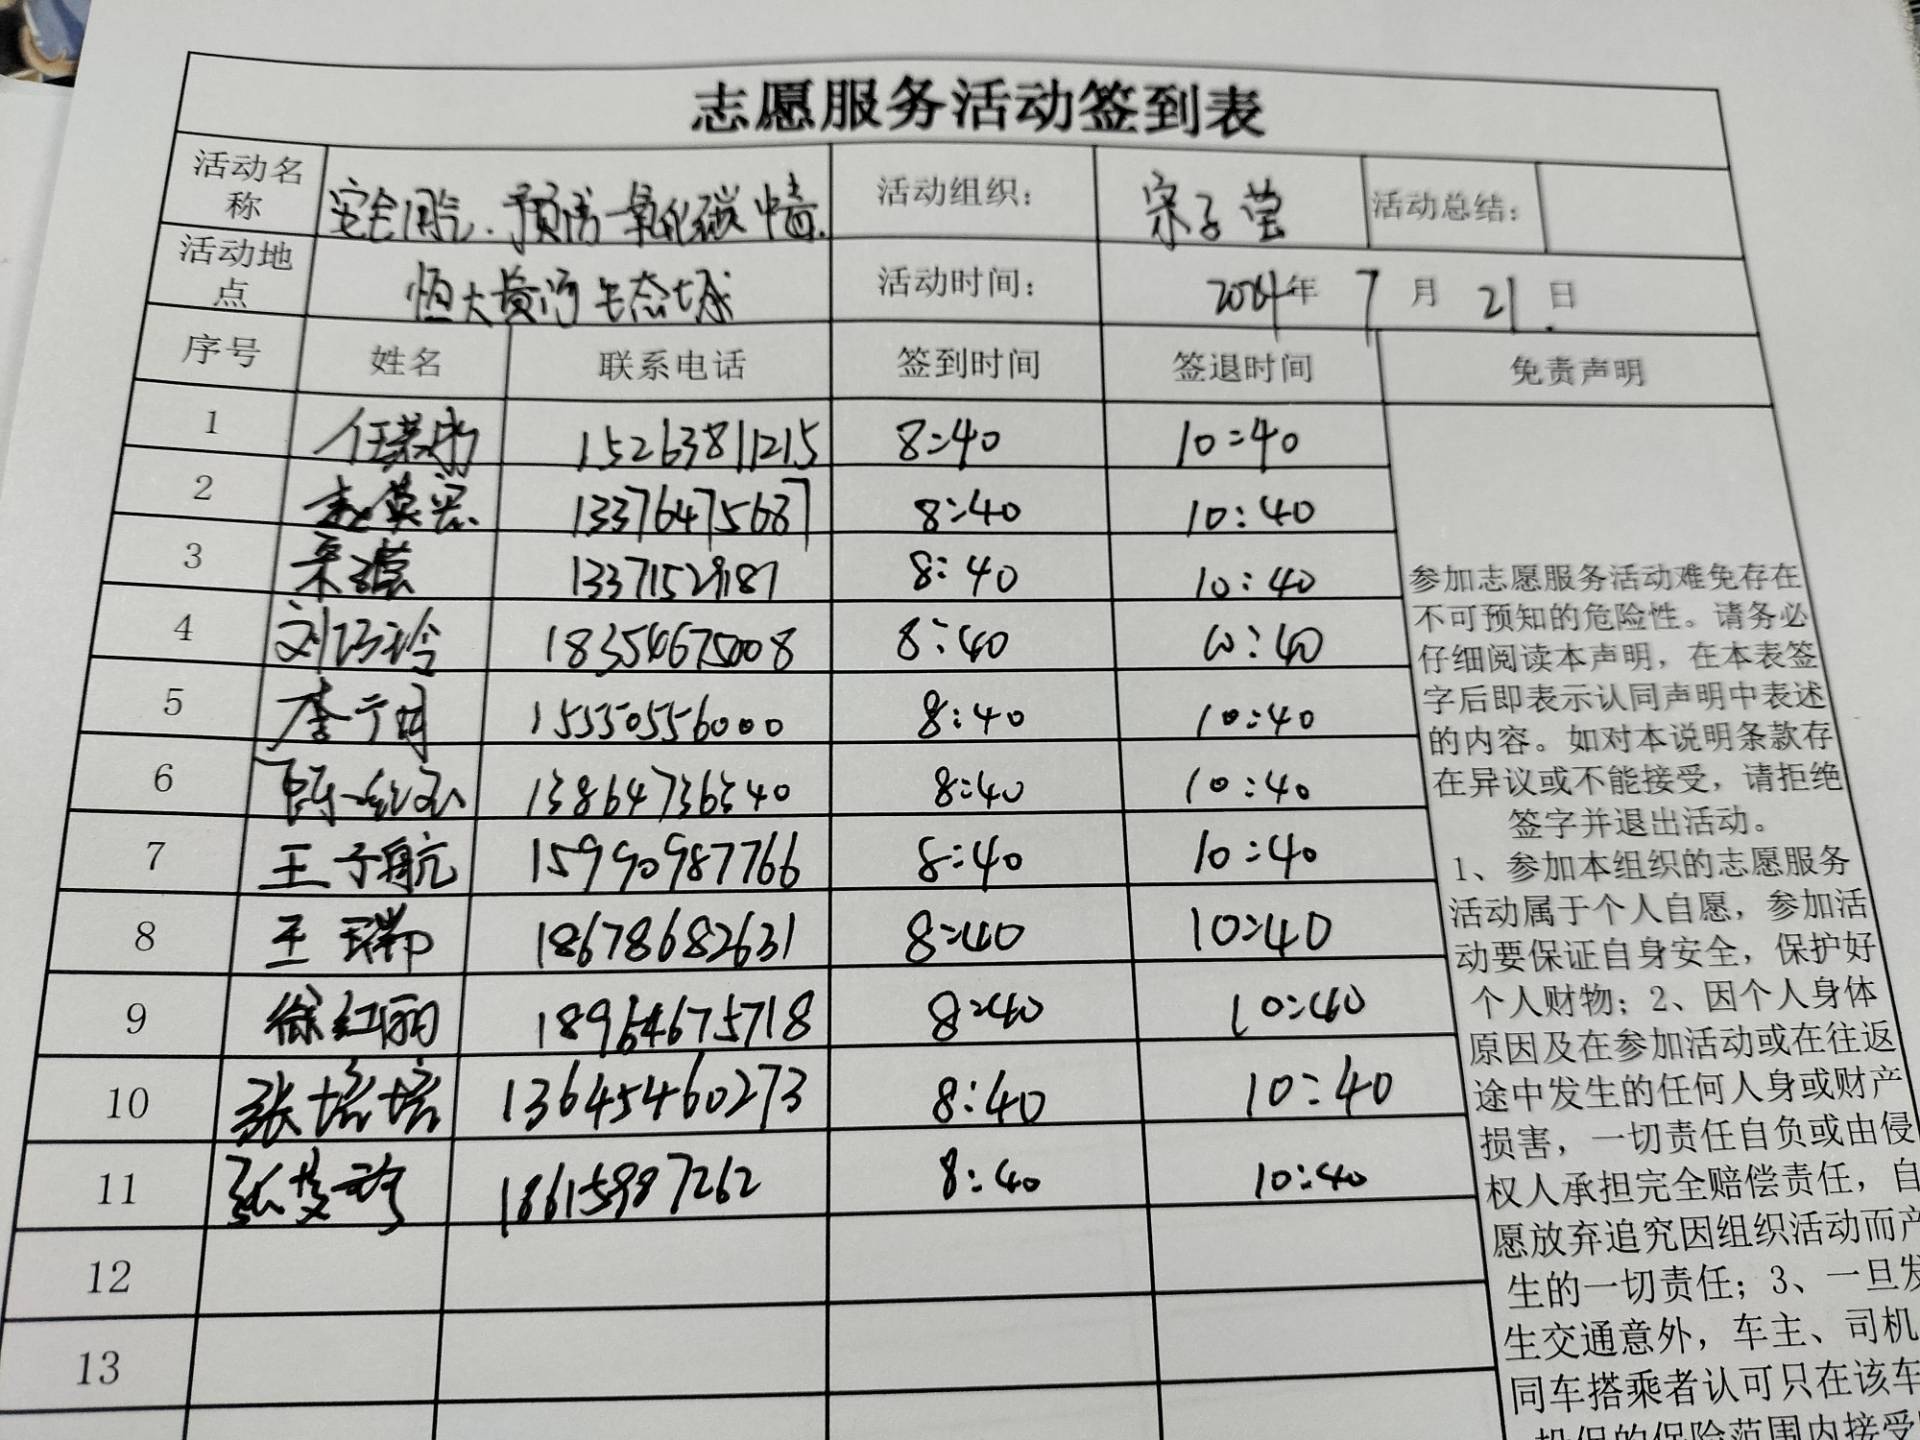 志愿服务活动签到表
活动名称 安全用气、预防一氧化碳中毒 活动组织： 宋子莹 活动总结：
活动地点 恒大黄河生态城 活动时间： 2024年 7 月 21 日
序号 姓名 联系电话 签到时间 签退时间 免责声明
1 15263811215 8:40 10:40
2 13376475687 8:40 10:40
3 13371529187 8:40 10:40
4 刘 18354675008 8:40 10:40
5 李 15550556000 8:40 10:40
6 陈红 13864736340 8:40 10:40
7 王子航 15990987766 8:40 10:40
8 王瑞 18678682631 8:40 10:40
9 徐红丽 18954675718 8:40 10:40
10 张培培 13645460273 8:40 10:40
11 张 18615987262 8:40 10:40
12
13
参加志愿服务活动难免存在
不可预知的危险性。请务必
仔细阅读本声明，在本表签
字后即表示认同声明中表述
的内容。如对本说明条款存
在异议或不能接受，请拒绝
签字并退出活动。
1、参加本组织的志愿服务
活动属于个人自愿，参加活
动要保证自身安全，保护好
个人财物；2、因个人身体
原因及在参加活动或在往返
途中发生的任何人身或财产
损害，一切责任自负或由侵
权人承担完全赔偿责任，自
愿放弃追究因组织活动而产
生的一切责任；3、一旦发
生交通意外，车主、司机
同车搭乘者认可只在该车
投保的保险范围内接受